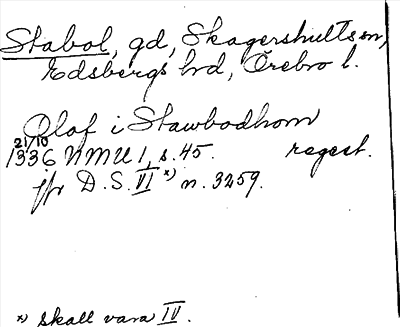 Stabol, gd, Skagershults sn,
Edsbergs hrd, Örebro l.
Olof i Stawbodhom
21/10
1336 NMU I, s. 45. regest.
jfr D.S. VI x) n. 3259.
x) skall vara IV.